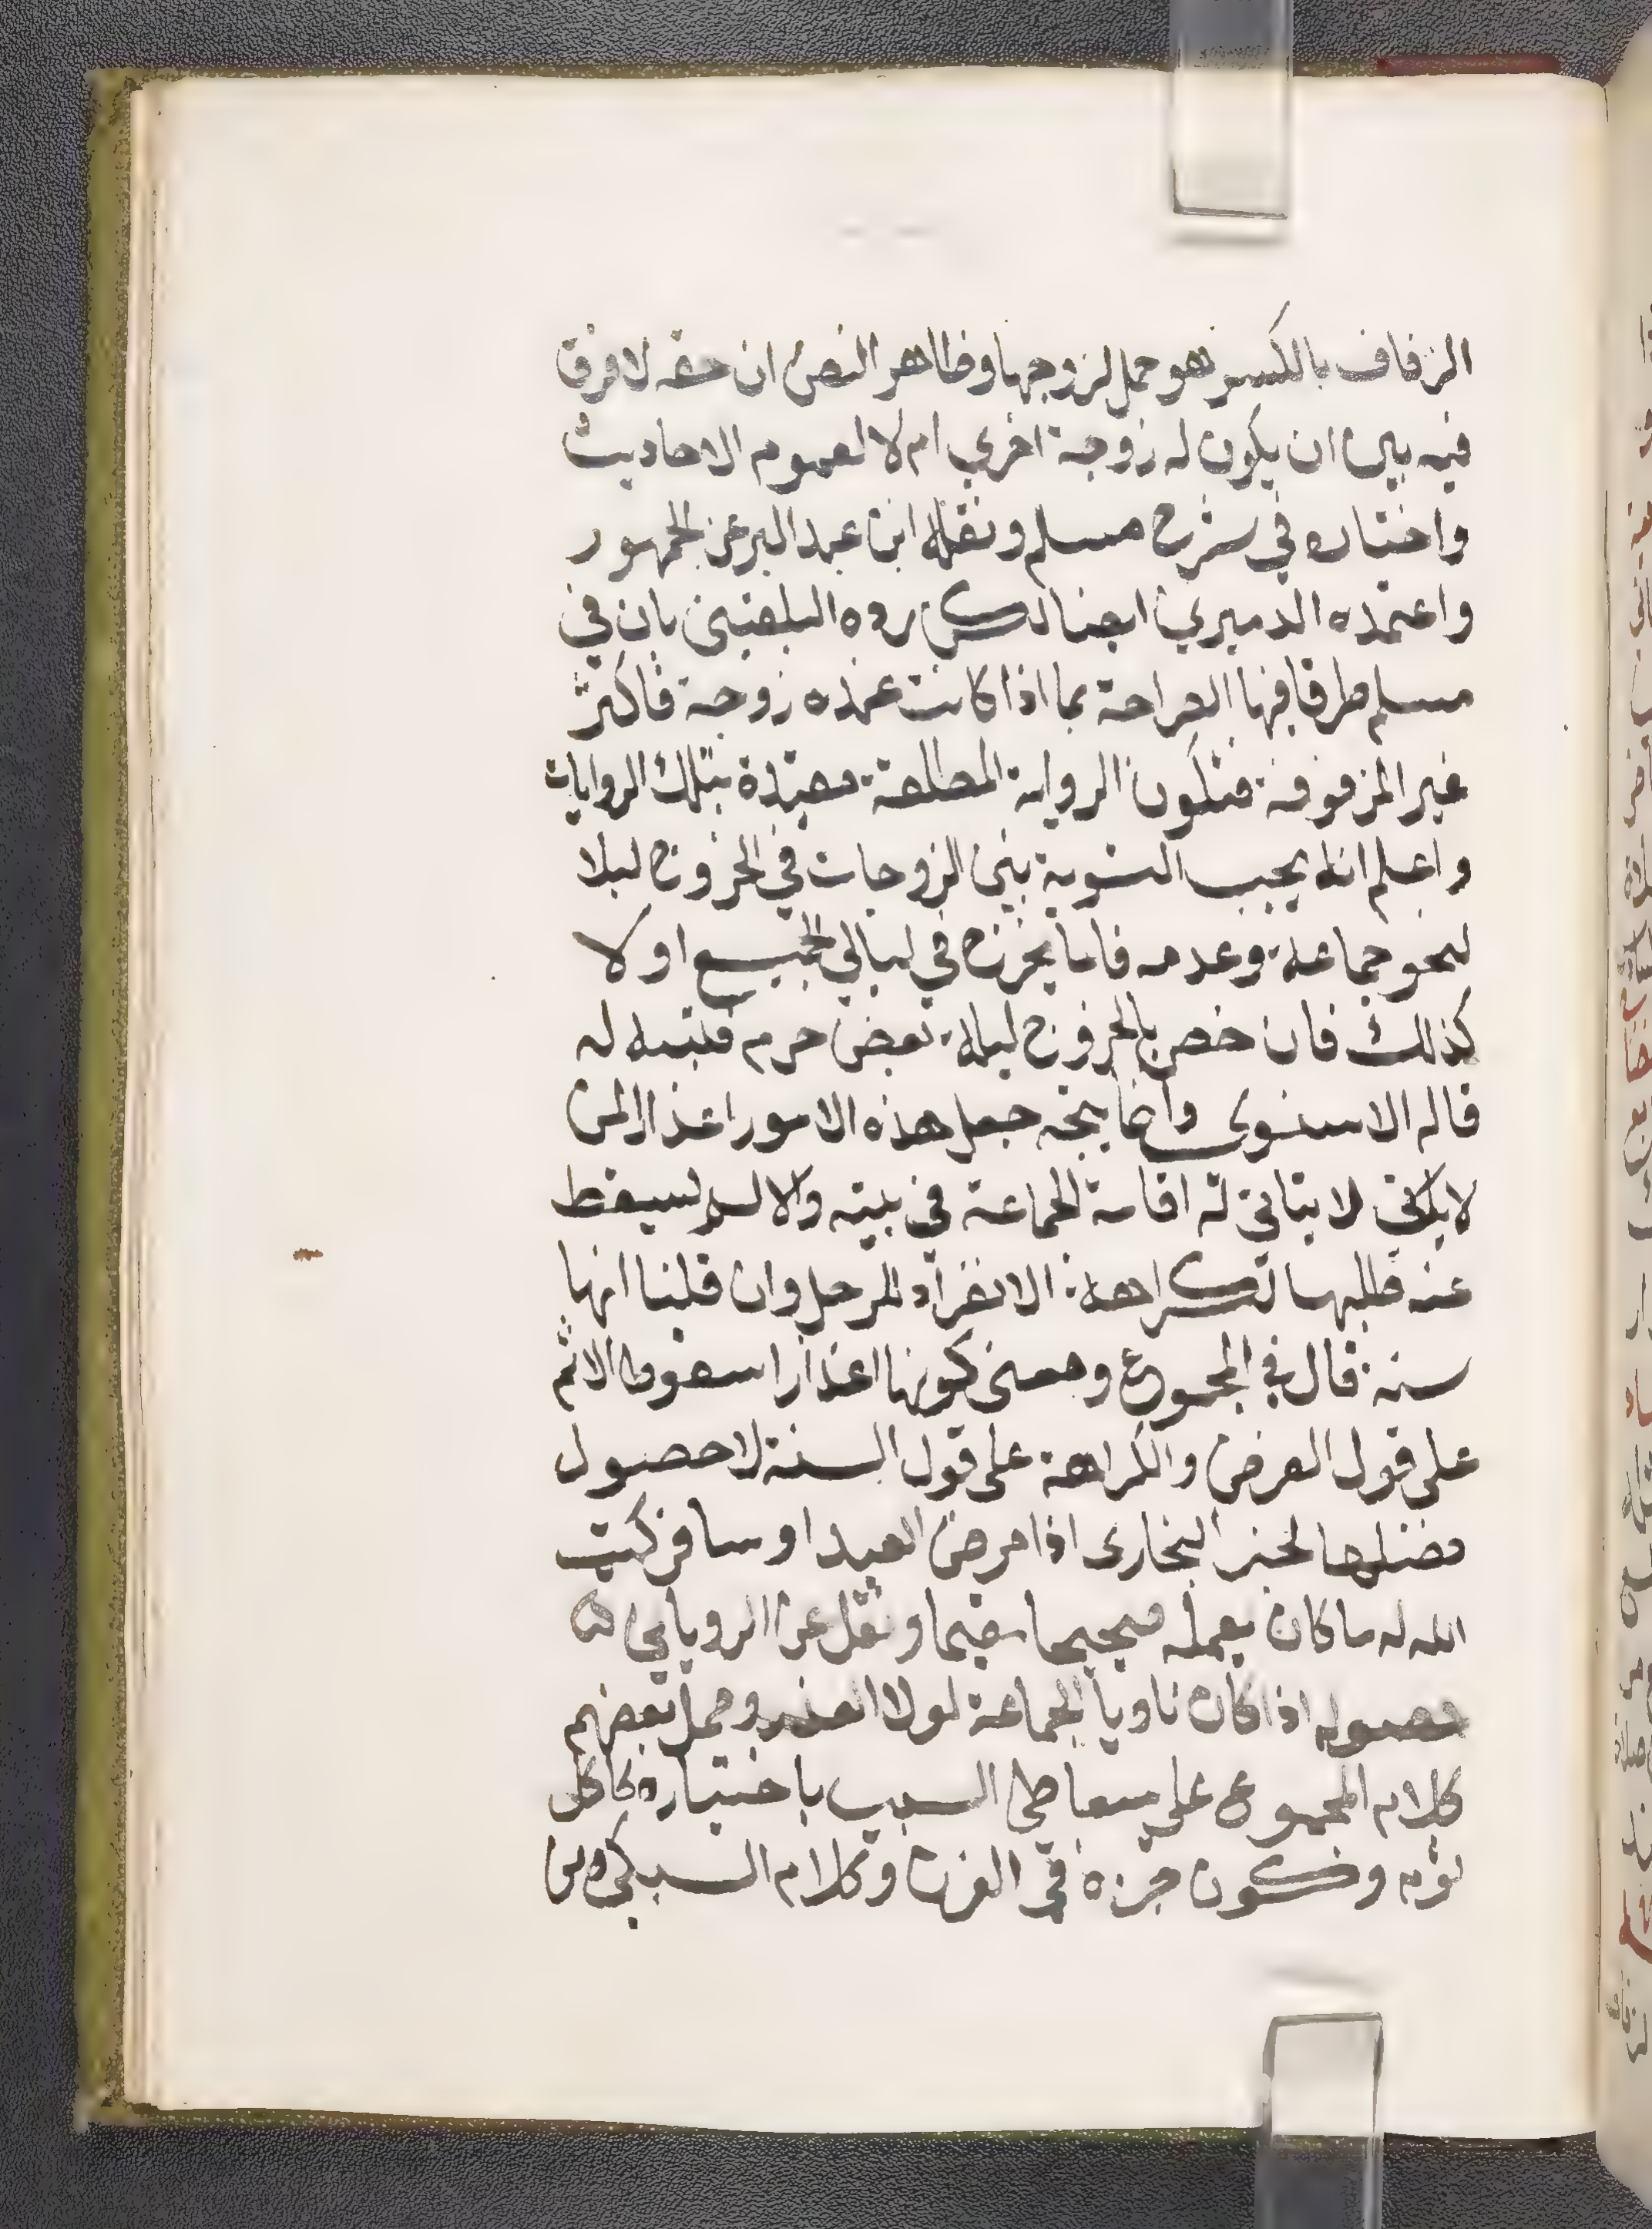 الزفاف بالكسر هو حمل لزوجها وظاهر النص ان حقه لا فرق
فيه بين ان يكون له زوجة اخري ام لا لعموم الاحاديث
واختاره في شرح مسلم ونقله ابن عبد البر عن الجمهور
واعتمده الدميري ايضا لكن رده البلقيني بان في
مسلم طرقا فيها الصراحة بما اذا كانت عنده زوجة فاكثر
غير المزفوفة فتكون الرواية المطلقة مقيدة بتلك الروايات
واعلم انه يجب التسوية بين الزوجات في الخروج ليلا
لنحو جماعة وعدمه فاما يخرج في ليالي الجميع او لا
كذلك فان خص بالخروج ليلة بعض حرم فليتنبه له
قاله الاسنوي وانما يتجه جعل هذه الامور اعذارا لمن
لا يتاتي له اقامة الجماعة في بيته والا لم يسقط
عنه طلبها لكراهة الانفراد للرجل وان قلنا انها
سنة قال في المجموع ومعني كونها اعذارا سقوط الاثم
علي قول الفرض والكراهة علي قول السنة لا حصول
فضلها لخبر البخاري اذا مرض العبد او سافر كتب
الله له ما كان يعمله صحيحا مقيما ونقل عن الروياني
حصوله اذا كان ناويا الجماعة لولا العذر وحمل بعضهم
كلام المجموع علي متعاطي السبب باختياره كاكل
ثوم وكون خبزه في الفرن وكلام السبكي ومن